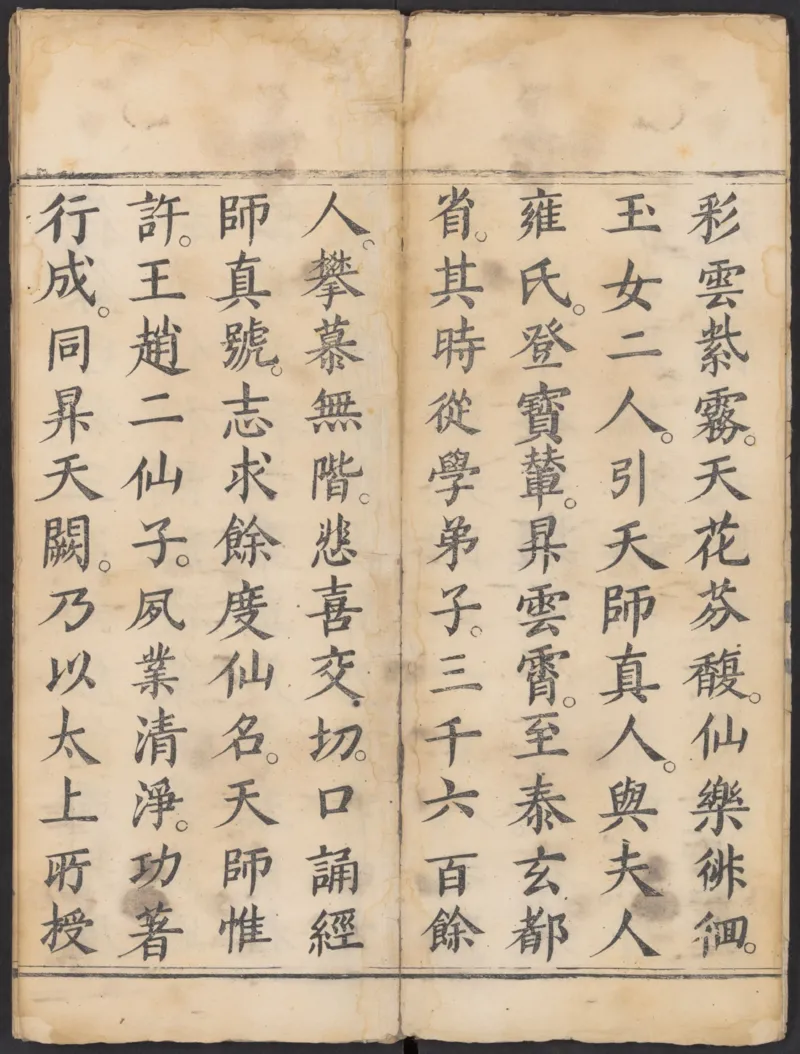 彩雲紫霧。天花芬馥。仙樂徘徊。
玉女二人。引天師真人。與夫人
雍氏。登寶輦。昇雲霄。至泰玄都
省。其時從學弟子。三千六百餘
人。攀慕無階。悲喜交切。口誦經
師真號。志求餘度仙名。天師惟
許。王趙二仙子。夙業清淨。功著
行成。同昇天闕。乃以太上所授